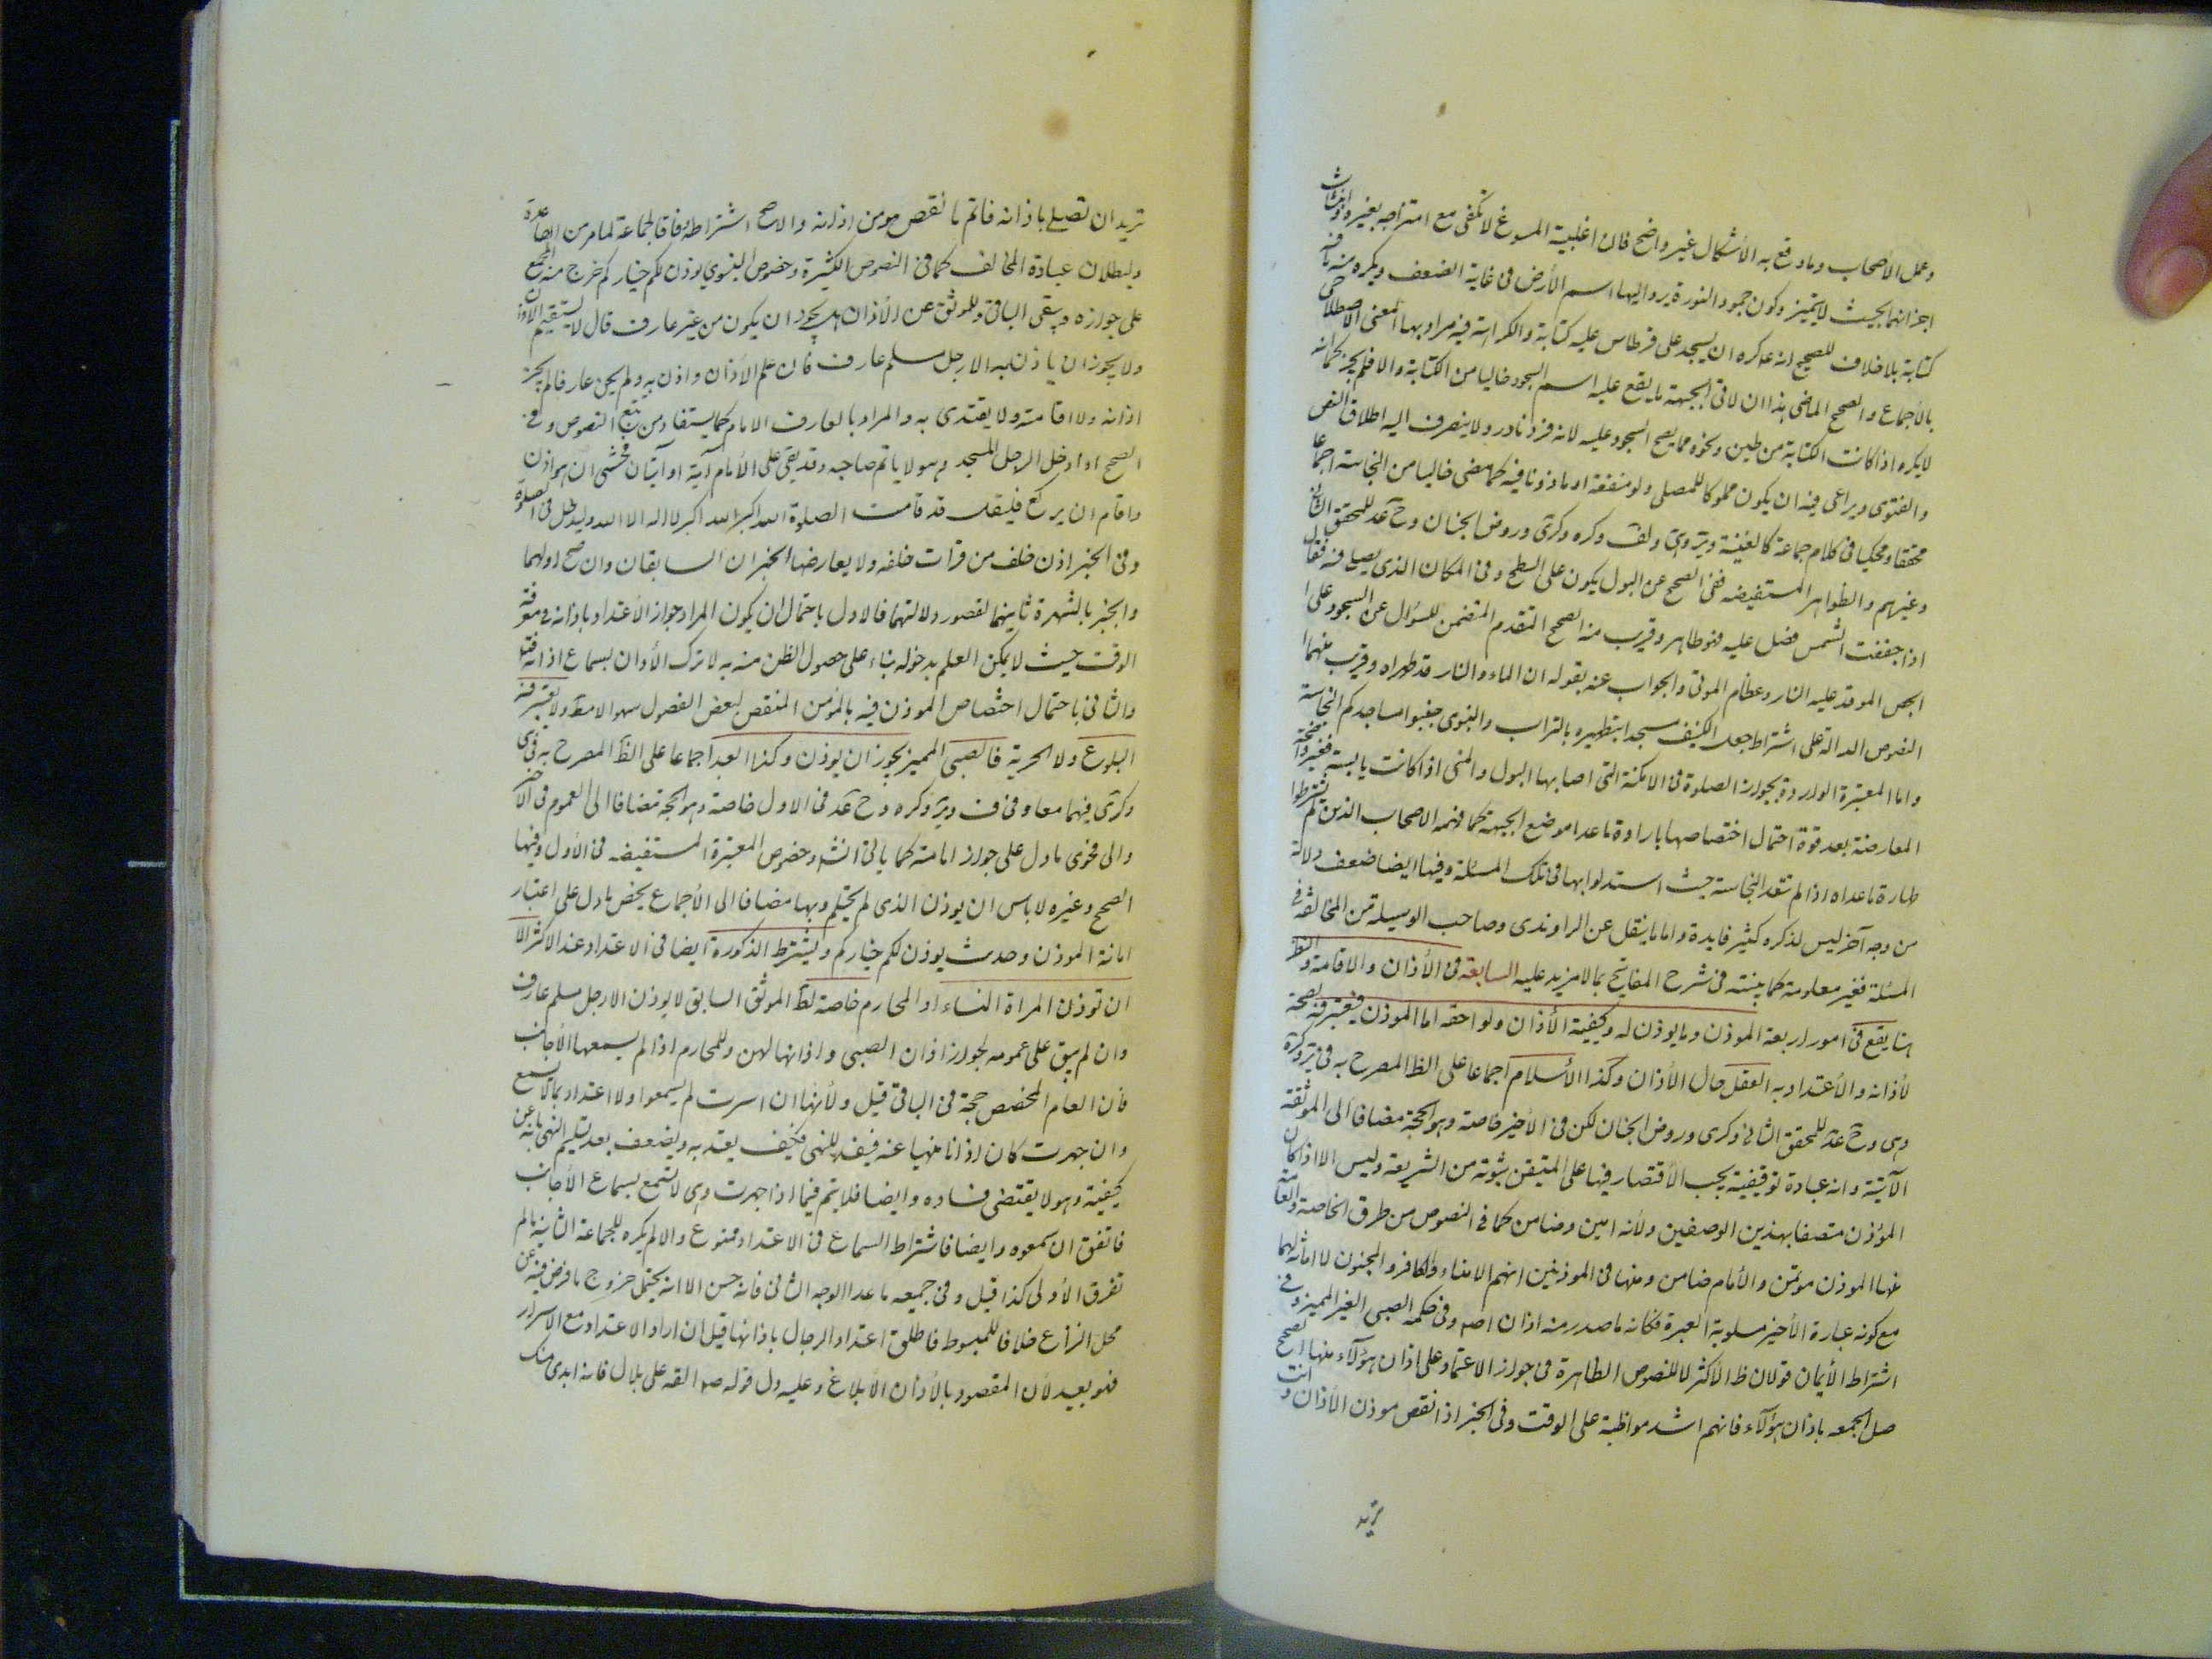 وعمل الأصحاب وما دفع به الأشكال غير واضح فان اغلبية المسوغ لا تكفى مع امتزاجه بغيره وانبثاث
اجزائهما بحيث لا يتميز وكون جمود النورة يرد اليها اسم الأرض فى غاية الضعف ويكره منه ما فيه
كتابة بلا خلاف للصحيح انه كره ان يسجد على قرطاس عليه كتابة والكراهة فيه مراد بها المعنى الاصطلاحى
بالأجماع والصحيح الماضى هذا ان لاقى الجبهة ما يقع عليه اسم السجود خاليا من الكتابة والا فلم يجز كما انه
لا يكره اذا كانت الكتابة من طين ونحوه مما يصح السجود عليه لانه فرد نادر ولا ينصرف اليه اطلاق النص
والفتوى ويراعى فيه ان يكون مملوكا للمصلى ولو منفعة او ماذونا فيه كما مضى خاليا من النجاسة اجماعا
محققا ومحكيا فى كلام جماعة كالغنية وكره وكرى وروض الجنان وح عد للمحقق الثانى
وغيرهم والظواهر المستفيضه ففى الصحيح عن البول يكون على السطح وفى المكان الذى يصلى فيه فقال
اذا جففت الشمس فصل عليه فهو طاهر وقريب منه الصحيح المتقدم المتضمن للسؤال عن السجود على
الجص الموقد عليه النار وعظام الموتى والجواب عنه بقوله ان الماء والنار قد طهراه وقريب منهما
النصوص الدالة على اشتراط جعل الكنيف مسجدا بتطهيره بالتراب والنبوى جنبوا مساجدكم النجاسة
واما المعتبرة الواردة بجواز الصلوة فى الامكنة التى اصابها البول والمنى اذا كانت يابسة فغير واضحة
المعارضة بعد قوة احتمال اختصاصها بارادة ما عدا موضع الجبهة كما فهمه الاصحاب الذين لم يشترطوا
طهارة ما عداه اذا لم تتعد النجاسة حيث استدلوا بها فى تلك المسئلة وفيها ايضا ضعف دلالة
من وجه آخر ليس لذكره كثير فايدة واما ما ينقل عن الراوندى وصاحب الوسيلة من المخالفة فى
المسئلة فغير معلومة كما بينته فى شرح المفاتيح بما لا مزيد عليه السابعة فى الأذان والاقامة والنظر
هنا يقع فى امور اربعة الموذن وما يوذن له وكيفية الأذان ولواحقه اما الموذن فيعتبر فيه لصحة
لأذانه والأعتداد به العقل حال الأذان وكذا الأسلام اجماعا على الظ المصرح به فى
وى وح عد للمحقق الثانى وكرى وروض الجنان لكن فى الأخير خاصة وهو الحجة مضافا الى الموثقة
الآتية وانه عبادة توقيفية يجب الأقتصار فيها على المتيقن ثبوته من الشريعة وليس الا اذا كان
الموذن متصفا بهذين الوصفين ولأنه امين وضامن كما فى النصوص من طرق الخاصة والعامة
منها الموذن موتمن والأمام ضامن ومنها فى الموذنين انهم الامناء والكافر والمجنون لا امانة لهما
مع كونه عبارة الأخير مسلوبة العبرة فكانه ما صدر منه اذان اصلا وفى حكمه الصبى الغير المميز وفى
اشتراط الأيمان قولان ظ الأكثر لا للنصوص الظاهرة فى جواز الاعتماد على اذان هؤلاء منها الصحيح
صل الجمعه باذان هؤلاء فانهم اشد مواظبة على الوقت وفى الخبر اذا نقص موذن الأذان وانت
تريد
تريد ان تصلى باذانه فاتم ما نقص هو من اذانه والاصح اشتراطه وفاقا لجماعة لما مر من القاعدة
ولبطلان عبادة المخالف كما فى النصوص الكثيرة وخصوص النبوى يوذن لكم خياركم خرج منه المجمع
على جوازه ويبقى الباقى وللموثق عن الأذان هل يجوز ان يكون من غير عارف قال لا يستقيم الأذان
ولا يجوز ان ياذن به الا رجل مسلم عارف فان علم الأذان واذن به ولم يكن عارفا لم يجز
اذانه ولا اقامته ولا يقتدى به والمراد بالعارف الامام كما يستفاد من تتبع النصوص وفى
الصحيح اذا دخل الرجل المسجد وهو لا ياتم صاحبه وقد بقى على الأمام آية او آيتان فخشى ان هو اذن
واقام ان يركع فليقل قد قامت الصلوة الله اكبر الله اكبر لا اله الا الله وليدخل فى الصلوة
وفى الخبر اذن خلف من قرأت خلفه ولا يعارضها الخبران السابقان وان صح اولهما
وانجبر بالشهرة ثانيهما لقصور دلالتهما فالاول باحتمال ان يكون المراد جواز الأعتداد باذانه فى معرفة
الوقت حيث لا يمكن العلم بدخوله بناء على حصول الظن منه به لا ترك الأذان بسماع اذانه
والثانى باحتمال اختصاص الموذن فيه بالمؤمن المنقص لبعض الفصول سهوا لا مط ولا يعتبر فيه
البلوغ ولا الحرية فالصبى المميز يجوز ان يوذن وكذا العبد اجماعا على الظ المصرح به فى
وكرى فيهما معا وفى ف وكره وح عد فى الاول خاصة وهو الحجة مضافا الى العموم فى الآخر
والى فحوى ما دل على جواز امامته كما ياتى انشاء وخصوص المعتبرة المستفيضه فى الأول وفيها
الصحيح وغيره لا باس ان يوذن الذى لم يحتلم وبها مضافا الى الأجماع يخص ما دل على اعتبار
امانة الموذن وحديث يوذن لكم خياركم ويشترط الذكورة ايضا فى الاعتداد عند الاكثر الا
ان توذن المراة النساء او المحارم خاصة لظ الموثق السابق لا يوذن الا رجل مسلم عارف
وان لم يبق على عمومه لجواز اذان الصبى واذانها لهن وللمحارم اذا لم يسمعها الأجانب
فان العام المخصص حجة فى الباقى قيل ولأنها ان اسرت لم يسمعوا ولا اعتداد بما لا يسمع
وان جهرت كان اذانا منهيا عنه فيفسد للنهى فكيف يعتد به ويضعف بعد تسليم النهى بانه عن
كيفية وهو لا يقتضى فساده وايضا فلا يتم فيما اذا جهرت وهى لا تسمع بسماع الأجانب
فاتفق ان سمعوه وايضا فاشتراط السماع فى الاعتداد ممنوع والا لم يكره للجماعة الثانية ما لم
تفرق الأولى كذا قيل وفى جميعه ما عدا الوجه الثانى فانه حسن الا انه يحتمل خروج ما فرض فيه عن
محل النزاع خلافا للمبسوط فاطلق اعتداد الرجال باذانها قيل ان اراد الاعتداد مع الاسرار
فهو بعيد لأن المقصود بالأذان الأبلاغ وعليه دل قوله ص القه على بلال فانه اندى منك